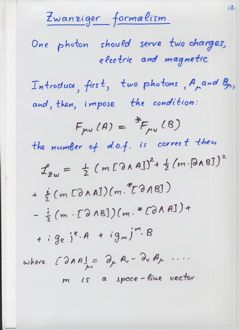 12
Zwanziger formalism
One photon should serve two charges,
electric and magnetic
Introduce, first, two photons, Aμ and Bμ,
and, then, impose the condition:
Fμν(A) = *Fμν(B)
the number of d.o.f. is correct then
ℒzw = ½(m[∂∧A])² + ½(m·[∂∧B])²
+ i/2 (m[∂∧A])(m·*[∂∧B])
- i/2 (m·[∂∧B])(m·*[∂∧A]) +
+ i ge jᵉ·A + i gm jᵐ·B
where [∂∧A]μν = ∂μ Aν - ∂ν Aμ ....
m is a space-like vector